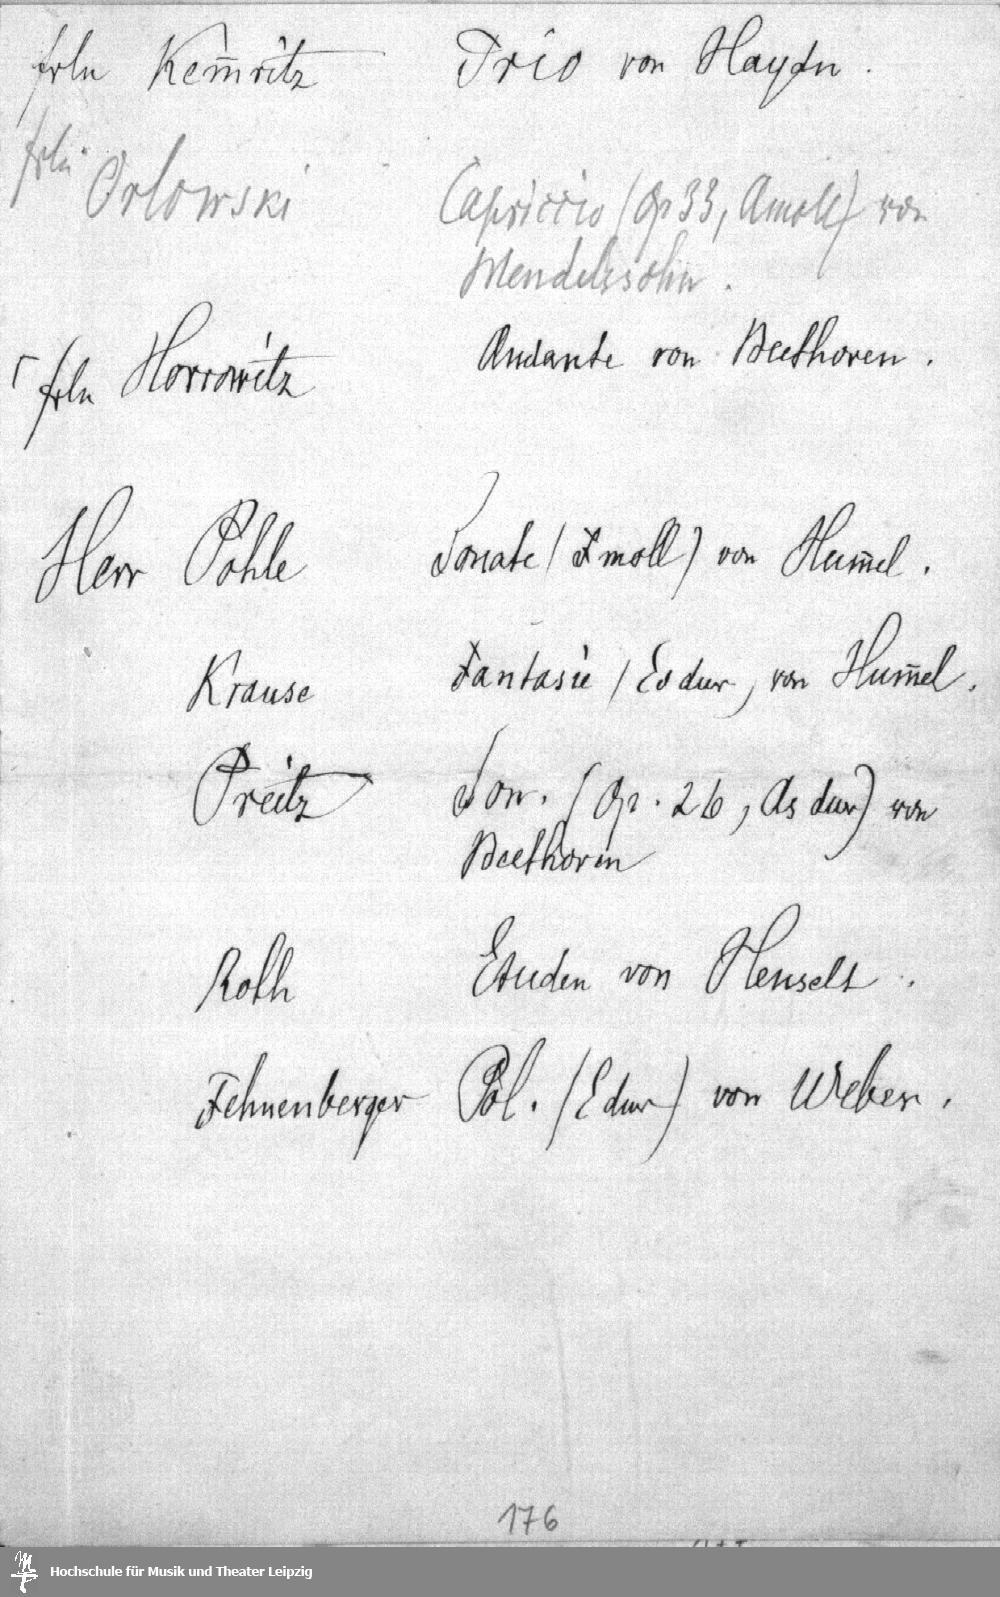 frln Kem̄ritz Trio von Haydn.
frln Orlowski Capriccio (Op 33, Amoll) von
Mendelssohn.
frln Horrowitz Andante von Beethoven.
Herr Pohle Sonate (Fmoll) von Hum̄el.
Krause Fantasie (Es dur, von Hum̄el.
Preitz Son. (Op. 26, As dur) von
Beethoven
Roth Etuden von Henselt.
Fehnenberger Pol. (Edur) von Weber.
176
Hochschule für Musik und Theater Leipzig